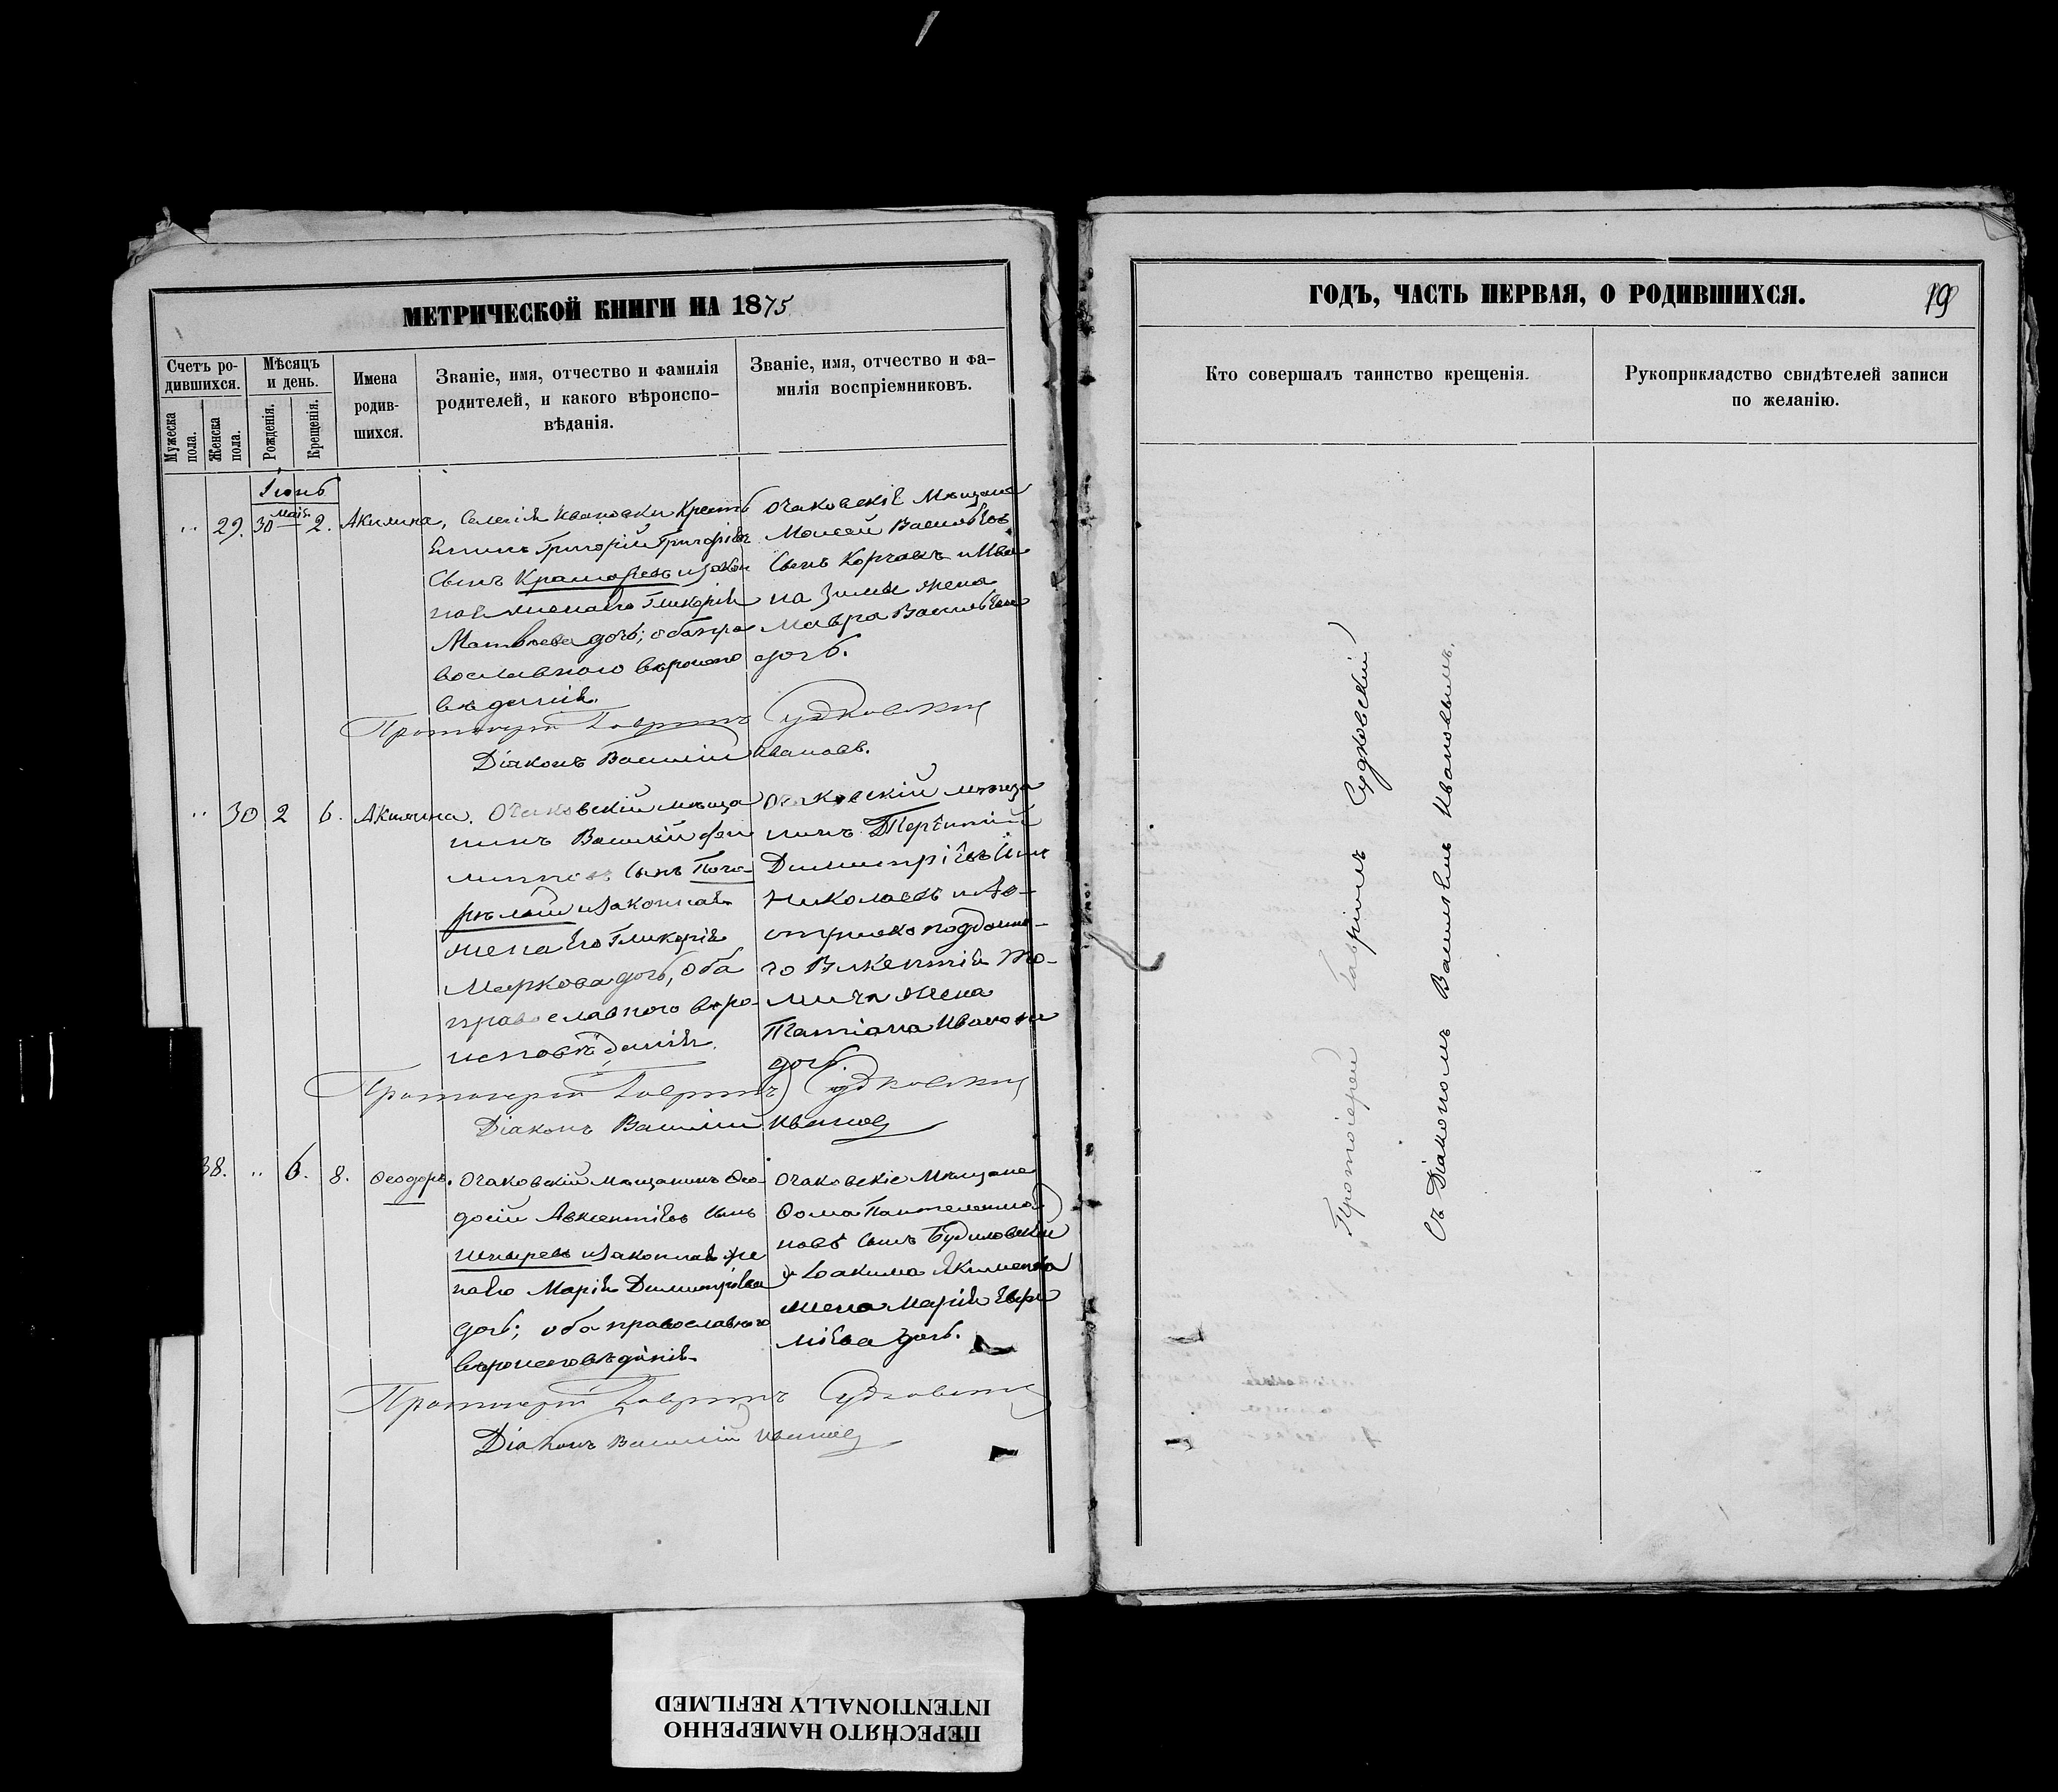 МЕТРИЧЕСКОЙ КНИГИ НА 1875
Счетъ ро-
дившихся.
Мужеска
пола.
Женска
пола.
Мѣсяцъ
и день.
Рожденія.
Крещенія.
Имена
родив-
шихся.
Званіе, имя, отчество и фамилія
родителей, и какого вѣроиспо-
вѣданія.
Званіе, имя, отчество и фа-
милія воспріемниковъ.
Іюнь
29. 30 Маія 2. Акилина,
Ивановки Кресть
Григорій Григоріевъ
сынъ и закон
Гликерія
Матвѣева дочь; оба пра
вославнаго вѣроиспо
вѣданія.
Очаковскіе Мѣщане
Моисей Васильевъ
сынъ Корчакъ и Ива
на Зимы жена
Мавра Васильева
дочь.
Протоіерей Гавріилъ Судковскій
Діаконъ Василій Ивановъ.
30 2 6. Акилина.
Очаковскій мѣща
нинъ Василій Фи
сынъ Пого-
рѣлый и законная
жена его Гликерія
Маркова дочь, оба
православнаго вѣро-
исповѣданія.
Очаковскій мѣща
нинъ Терентій
Димитріевъ сынъ
Николаевъ и Ав-
стрійско подданна-
го Викентія То-
мича жена
Татіана Иванова
дочь.
Протоіерей Гавріилъ Судковскій
Діаконъ Василій Ивановъ
38. 6. 8. Ѳеодоръ.
Очаковскій мѣщанинъ Ѳео-
досій Авксентіевъ сынъ
и законная же
на его Марія Димитріева
дочь; оба православнаго
вѣроисповѣданія.
Очаковскіе Мѣщане
Ѳома Пантелеимо
новъ сынъ Будиловскій
и Іоакима Якименка
жена Марія Евѳи
міева дочь.
Протоіерей Гавріилъ Судковскій
Діаконъ Василій Ивановъ
ГОДЪ, ЧАСТЬ ПЕРВАЯ, О РОДИВШИХСЯ.
19
Кто совершалъ таинство крещенія.
Рукоприкладство свидѣтелей записи
по желанію.
Протоіерей Гавріилъ Судковскій
съ Діакономъ Василіемъ Ивановымъ.
ПЕРЕСНЯТО НАМЕРЕННО
INTENTIONALLY REFILMED